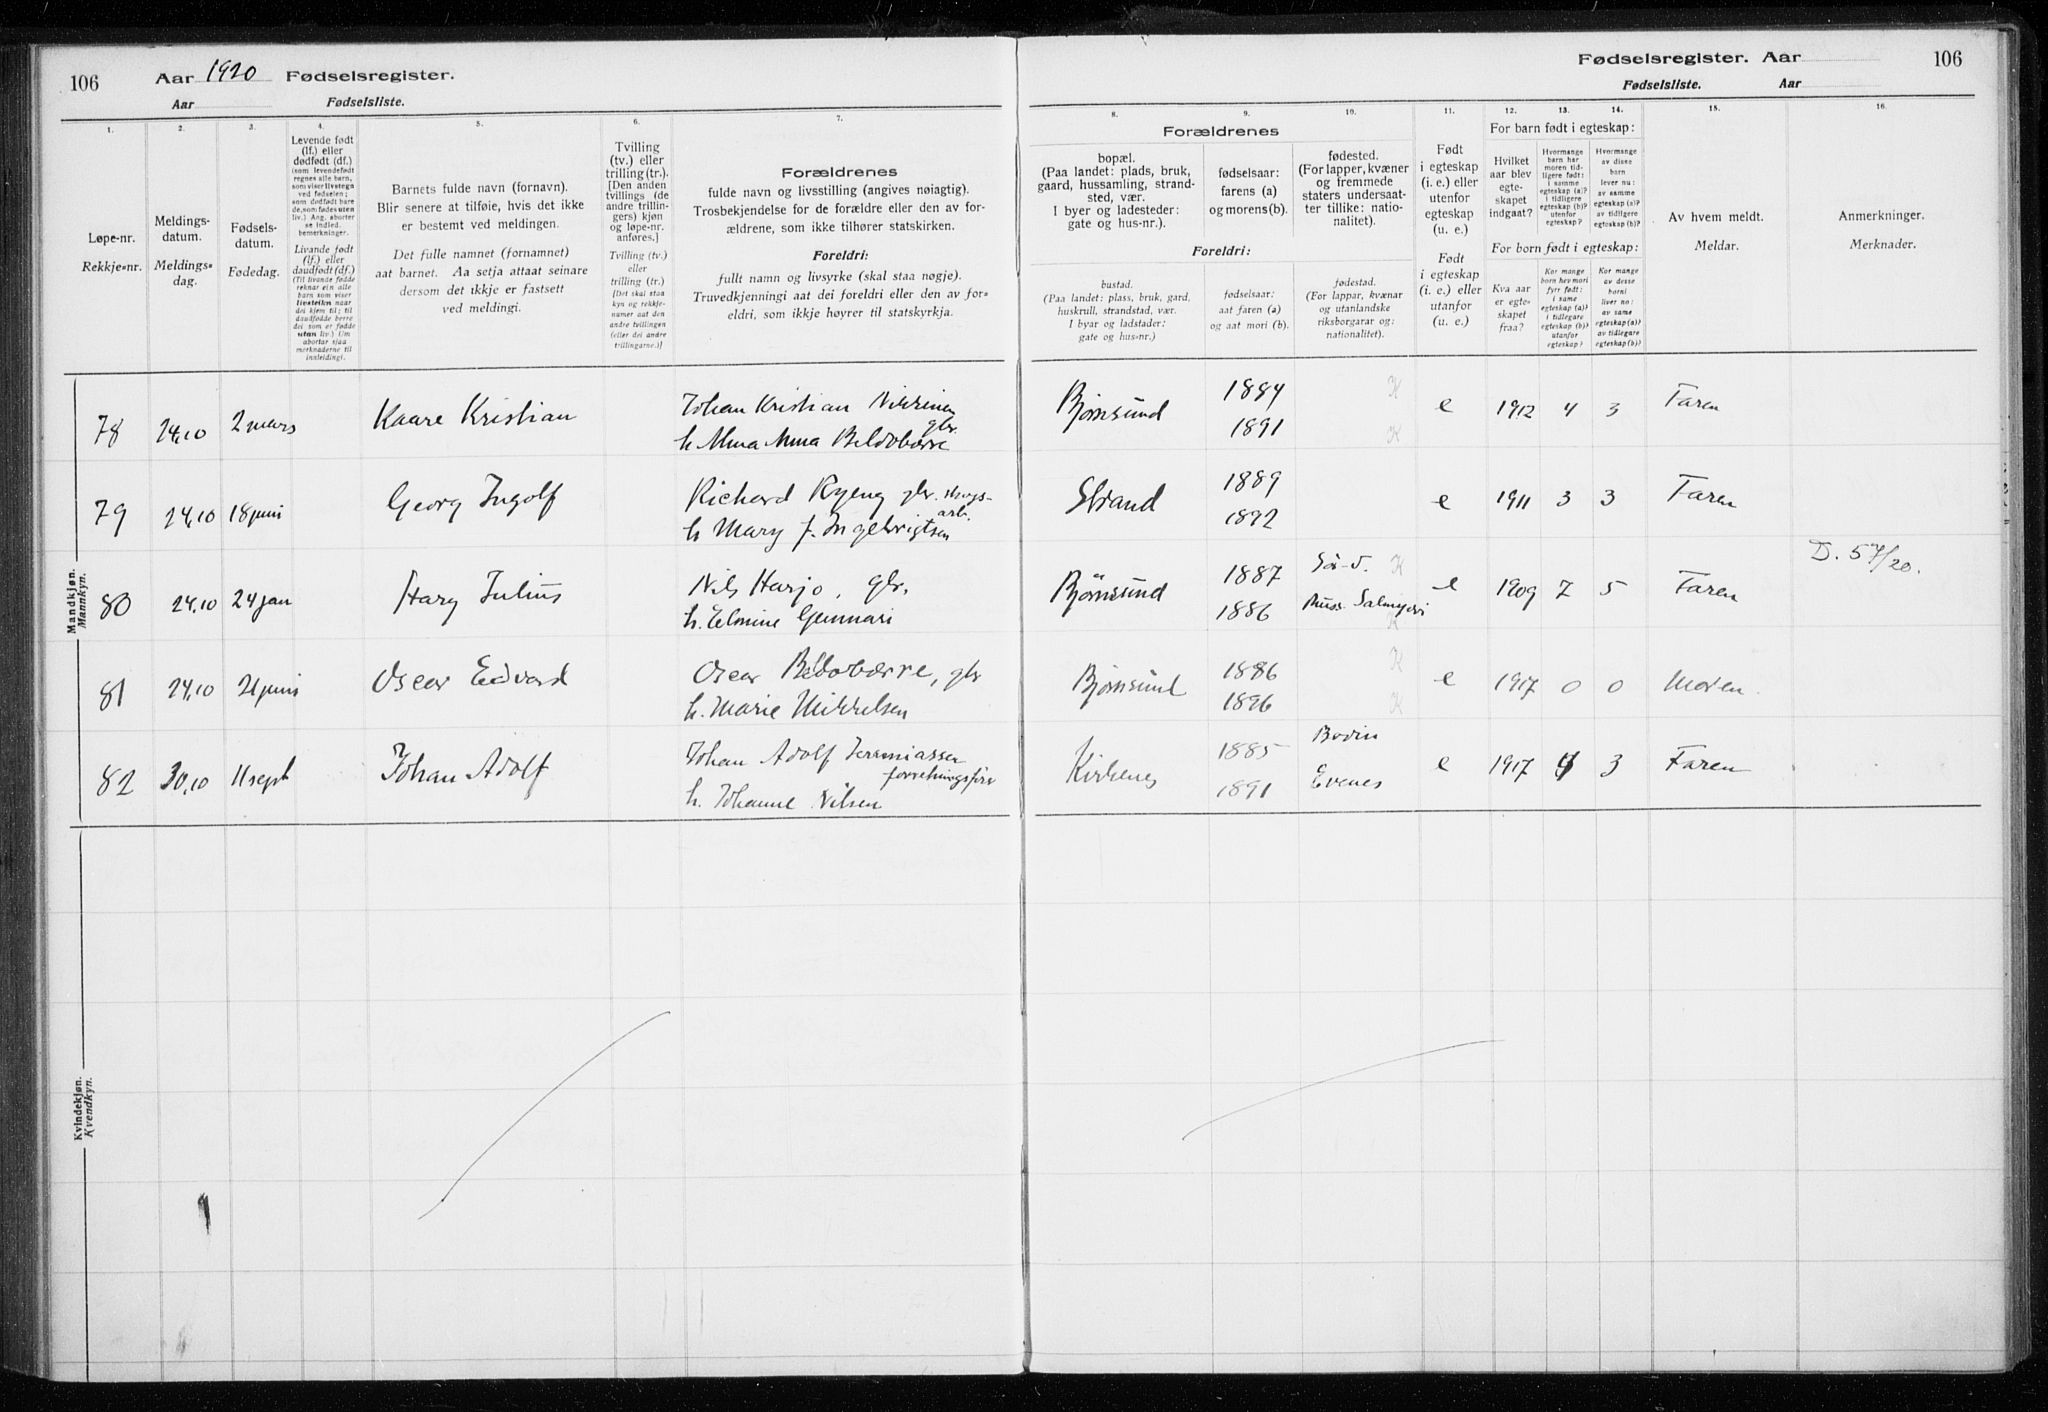 106 Aar 1920 Fødselsregister.
Aar Fødselsliste.
Fødselsregister. Aar 106
Fødselsliste. Aar
1. 2. 3. 4. 5. 6. 7.
8. 9. 10. 11. 12. 13. 14. 15. 16.
Løpe-nr.
Rekkje=nr.
Meldings-
datum.
Meldings=
dag.
Fødsels-
datum.
Fødedag.
Levende født
(lf.) eller
dødfødt (df.)
(som levendefødt
regnes alle barn,
som viser livstegn
ved fødselen;
som dødfødt bare
de, som fødes uten
liv.) Ang. aborter
se indled.
bemerkninger.
Livande født
(lf.) eller
daudfødt (df.)
(Til livande fødde
reknar ein alle
barn som viser
livsteikn naar
dei kjem til; til
daudfødde berre
dei som er fødde
utan liv.) Um
abortar sjaa
merknaderne til
innleidingi.
Barnets fulde navn (fornavn).
Blir senere at tilføie, hvis det ikke
er bestemt ved meldingen.
Det fulle namnet (fornamnet)
aat barnet. Aa setja attaat seinare
dersom det ikkje er fastsett
ved meldingi.
Tvilling
(tv.) eller
trilling (tr.).
[Den anden
tvillings (de
andre trillin-
gers) kjøn
og løpe-nr.
anføres.]
Tvilling (tv.)
eller
trilling (tr.)
[Det skal staa
kyn og rekkje-
numer aat den
andre tvillingen
(eller dei andre
trillingarne).]
Forældrenes
fulde navn og livsstilling (angives nøiagtig).
Trosbekjendelse for de forældre eller den av for-
ældrene, som ikke tilhører statskirken.
Foreldri:
fullt namn og livsyrke (skal staa nøgje).
Truvedkjenningi aat dei foreldri eller den av for=
eldri, som ikkje høyrer til statskyrkja.
Forældrenes
bopæl.
(Paa landet: plads, bruk,
gaard, hussamling, strand-
sted, vær.
I byer og ladesteder:
gate og hus-nr.).
fødselsaar:
farens (a)
og morens (b).
fødested.
(For lapper, kvæner
og fremmede
staters undersaat-
ter tillike: natio-
nalitet).
Foreldri:
bustad.
(Paa landet: plass, bruk, gard,
huskrull, strandstad, vær.
I byar og ladstader:
gate og hus=nr.)
fødselsaar:
aat faren (a)
og aat mori (b).
fødestad.
(For lappar, kvænar
og utanlandske
riksborgarar og:
nationalitet).
Født
i egteskap
(i. e.) eller
utenfor
egteskap
(u. e.)
Født
i egteskap
(i. e.) eller
utanfor
(u. e.)
For barn født i egteskap:
Hvilket
aar blev
egte-
skapet
indgaat?
Hvormange
barn har
moren tid-
ligere født:
i samme
egteskap (a)?
i tidligere
egteskap (b)?
utenfor
egteskap?
Hvormange
av disse
barn
lever nu:
av samme
egteskap (a)?
av tidligere
egteskap (b)?
For born født i egteskap:
Kva aar
er egte=
skapet
fraa?
Kor mange
born hev mori
fyrr født:
i same
egteskap (a)?
i tidlegare
egteskap (b)?
utanfor
egteskap?
Kor mange
av desse
borni
liver no:
av same
egteskap (a)?
av tidlegare
egteskap (b)?
Av hvem meldt.
Meldar.
Anmerkninger.
Merknader.
Mandkjøn.
Mannkyn.
78 24,10 2 mars Kaare Kristian Johan Kristian Nikkinen gbr. Bjørnsund 1884 K e 1912 4 3 Faren
h. Alma Anna Beldobærre 1891 K
79 24,10 18 juni Georg Ingolf Richard Ryeng gbr. skogs- Strand 1889 e 1911 3 3 Faren
arb.
h. Mary f. Ingebrigtsen 1892
80 24,10 24 jan Harry Julius Nils Harjo, gbr. Bjørnsund 1887 Sør-V. K e 1909 7 5 Faren D. 57/20.
h. Elmine 1886 Russ. K
81 24,10 21 juni Oscar Edvard Oscar Beldobærre, gbr Bjørnsund 1886 K e 1917 0 0 Moren
h. Marie Mikkelsen 1896 K
82 30,10 11 sept Johan Adolf Johan Adolf Jeremiassen Kirkenes 1885 Bodin e 1917 4 3 Faren
forretningsfør
h. Johanne Nilsen 1891 Evenes
Kvindekjøn.
Kvendkyn.